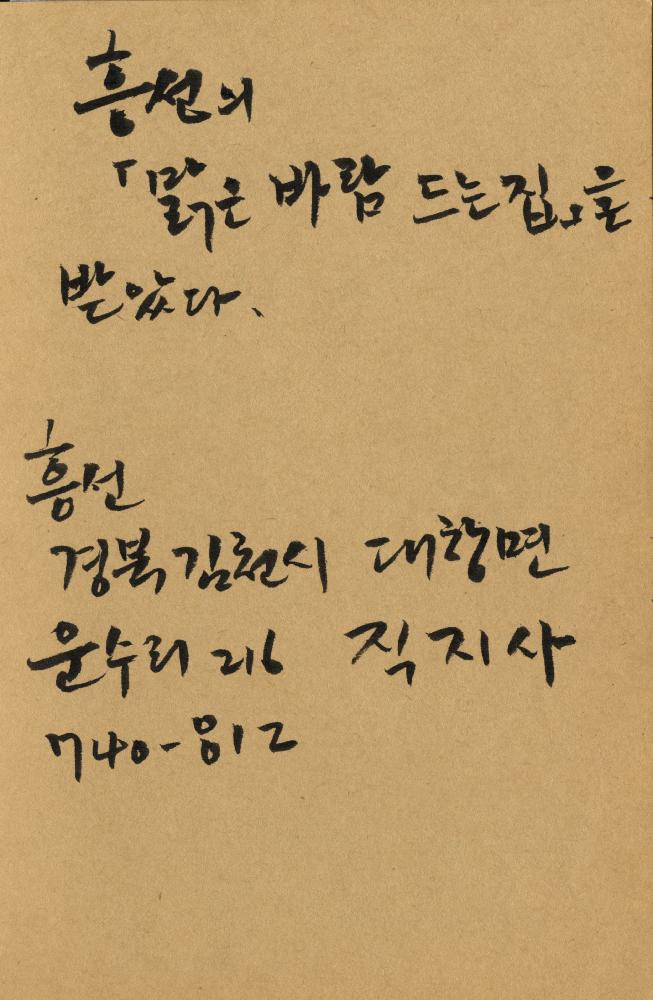 흥선의
「맑은 바람 드는 집」을
받았다.
흥선
경북 김천시 대항면
운수리 216 직지사
740-812